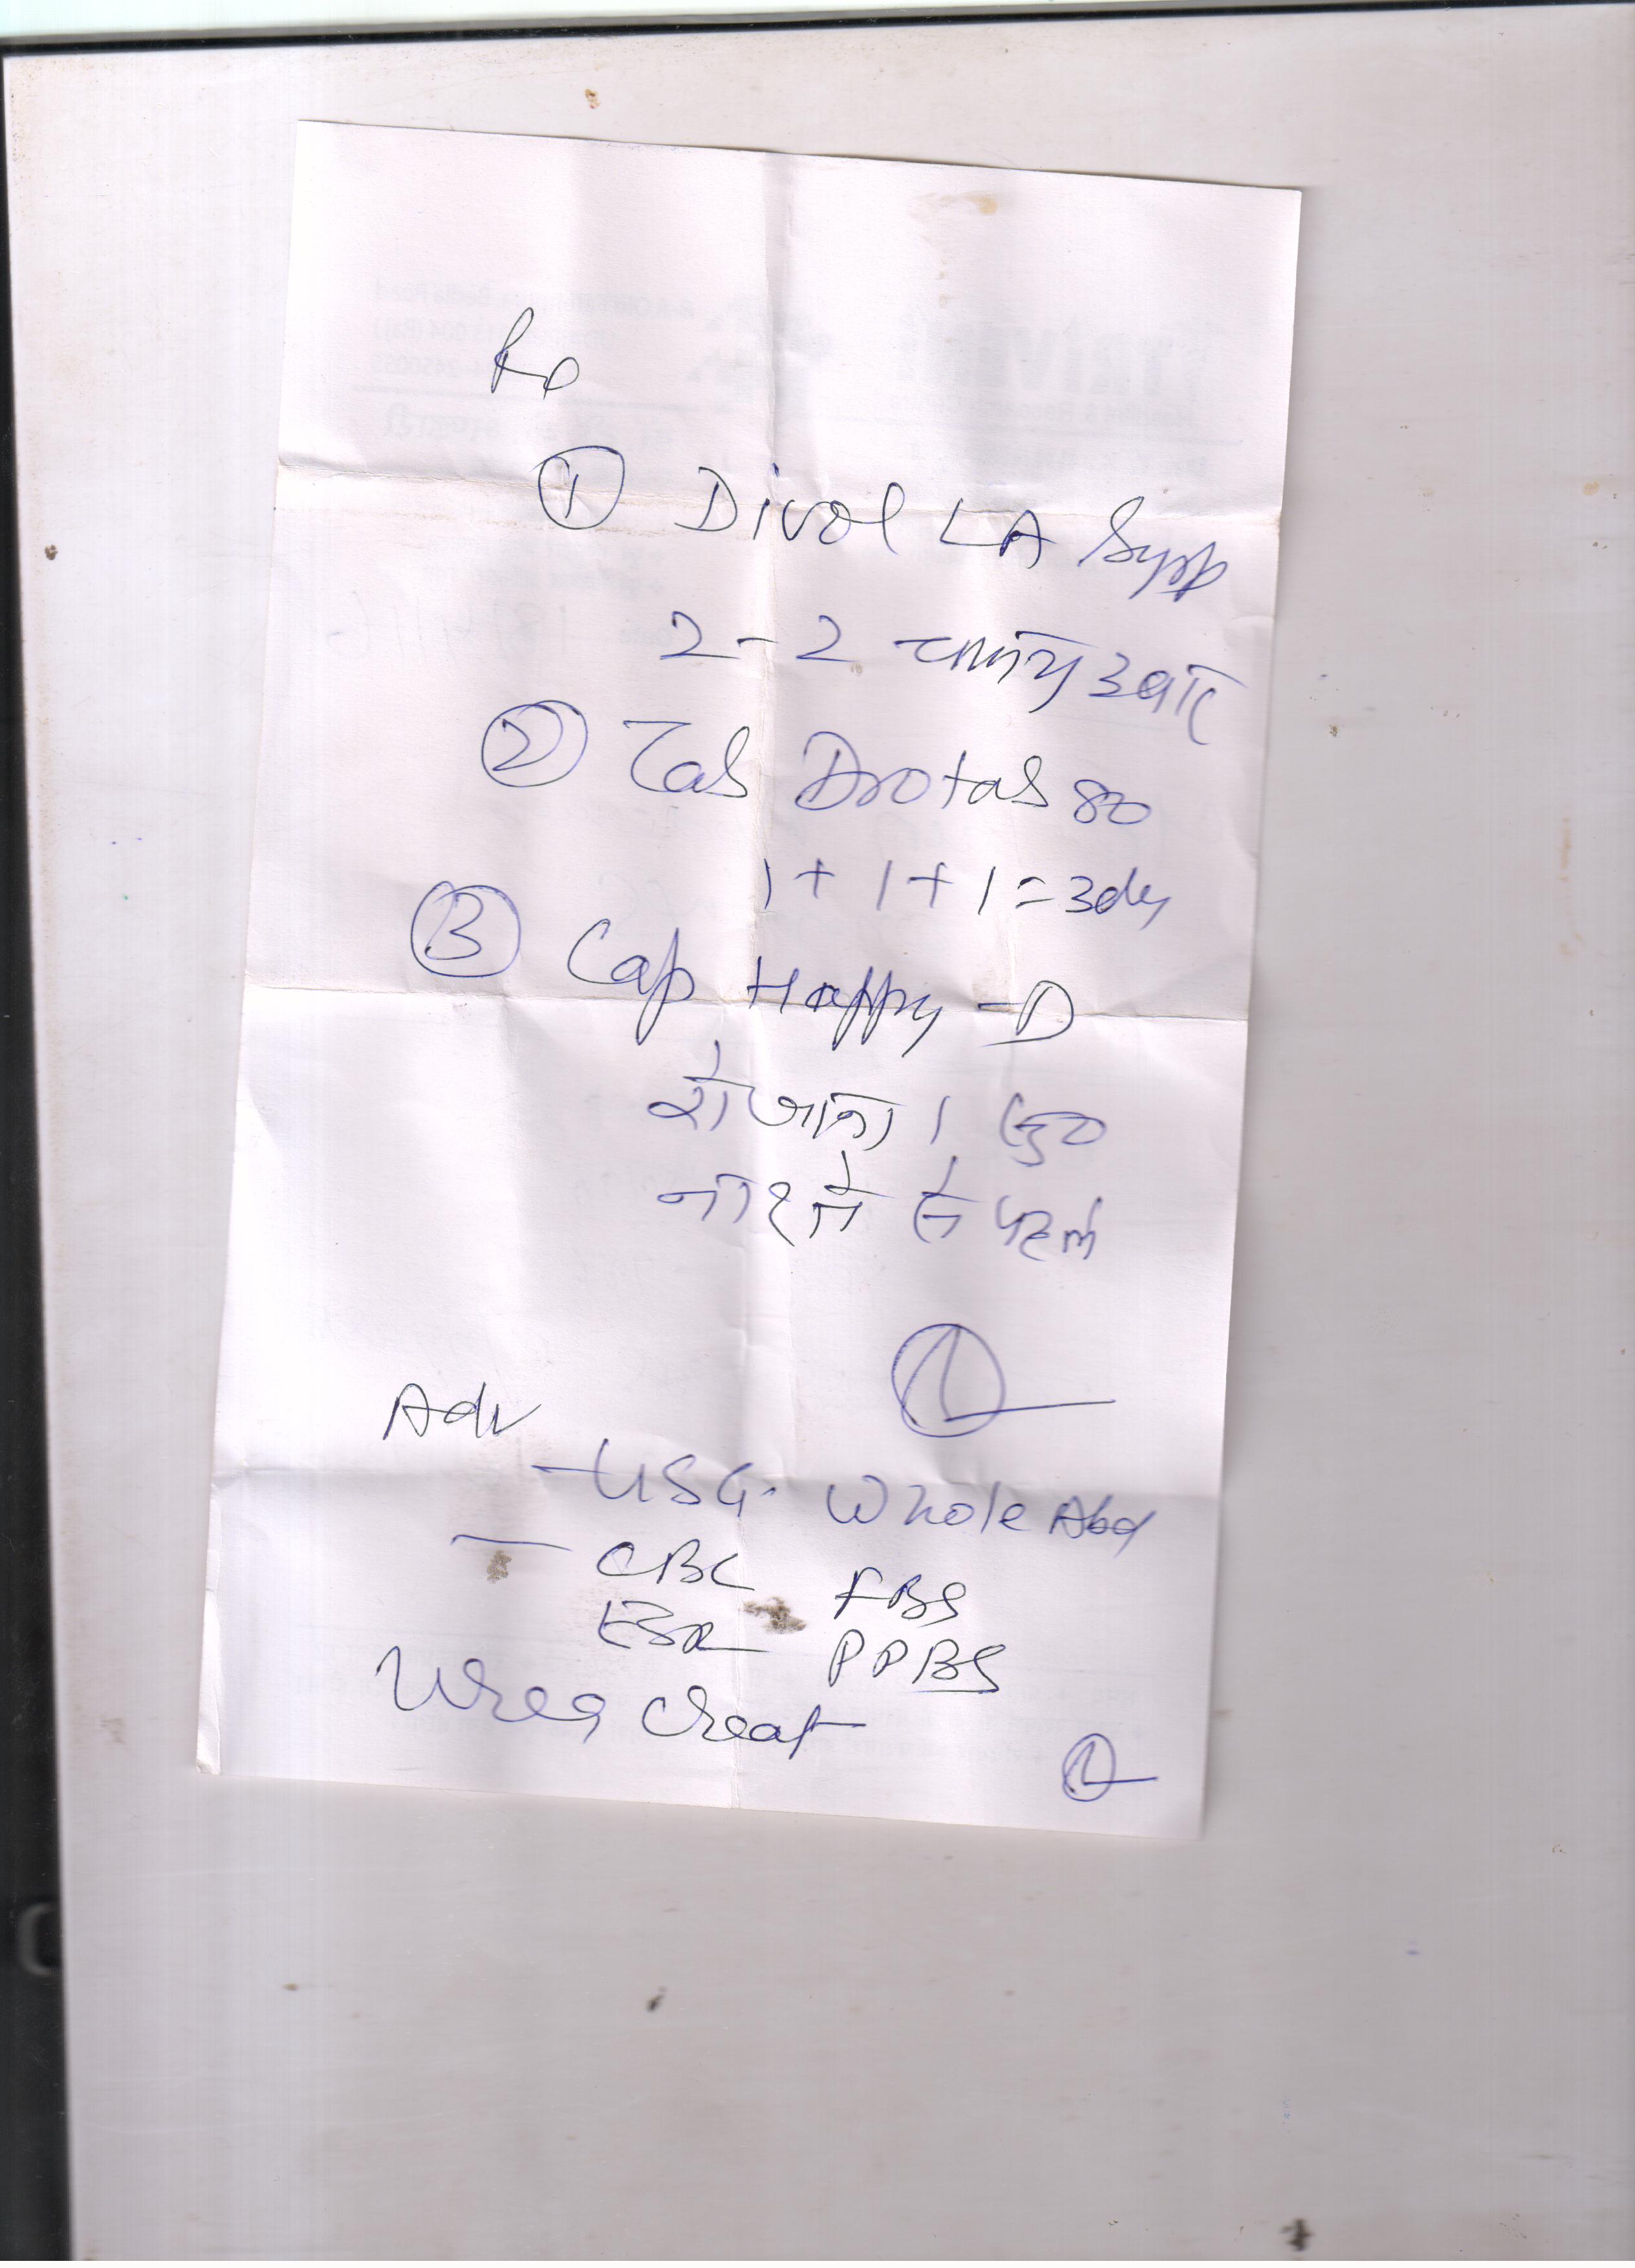 Rx
① Divol LA Syrp
2-2 चम्मच 3 बार
② Tab Drotab 80
1 + 1 + 1 = 3 day
③ Cap Happy-D
रोजाना 1
नाश्ते से पहले
Adv
- USG. Whole Abd
- CBC FBS
ESR PPBS
Urea Creat